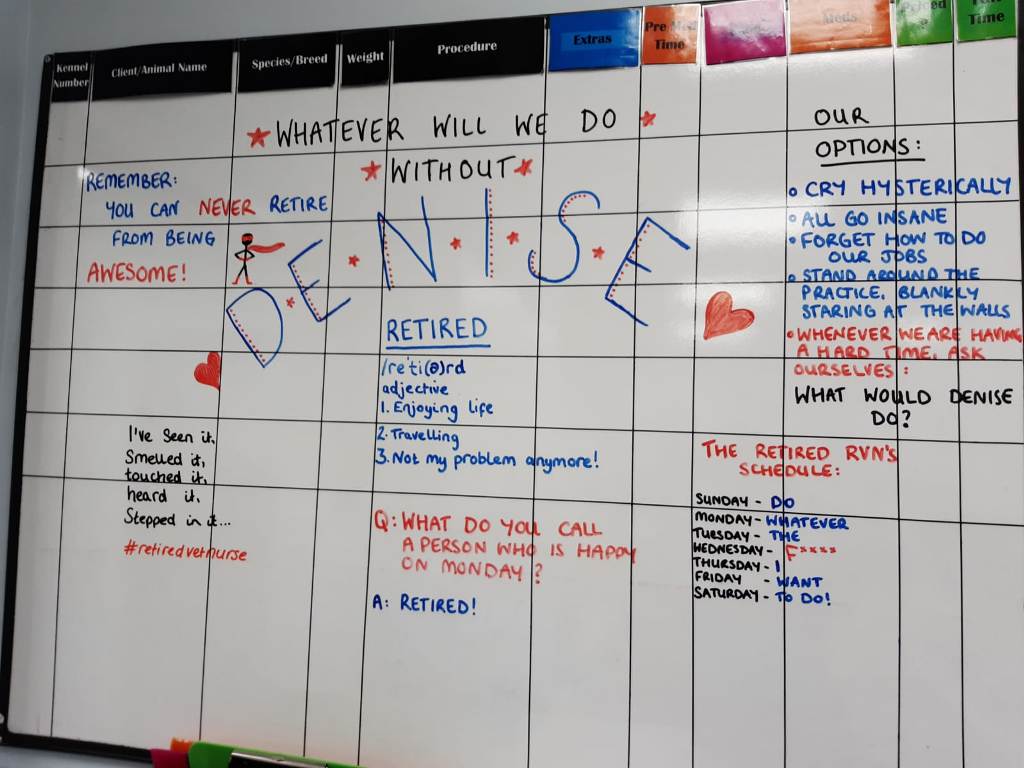 Kennel
Number
Client/Animal Name
Species/Breed
Weight
Procedure
Extras
Time
Meds
Time
WHATEVER WILL WE DO
WITHOUT
DENISE
REMEMBER:
YOU CAN NEVER RETIRE
FROM BEING
AWESOME!
RETIRED
/re'ti(ə)rd
adjective
1. Enjoying life
2. Travelling
3. Not my problem anymore!
I've seen it,
Smelled it,
touched it,
heard it,
Stepped in it...
#retiredvetnurse
Q: WHAT DO YOU CALL
A PERSON WHO IS HAPPY
ON MONDAY?
A: RETIRED!
OUR
OPTIONS:
CRY HYSTERICALLY
ALL GO INSANE
FORGET HOW TO DO
OUR JOBS
STAND AROUND THE
PRACTICE, BLANKLY
STARING AT THE WALLS
WHENEVER WE ARE HAVING
A HARD TIME, ASK
OURSELVES:
WHAT WOULD DENISE
DO?
THE RETIRED RVN'S
SCHEDULE:
SUNDAY - DO
MONDAY - WHATEVER
TUESDAY - THE
WEDNESDAY - F****
THURSDAY - I
FRIDAY - WANT
SATURDAY - TO DO!